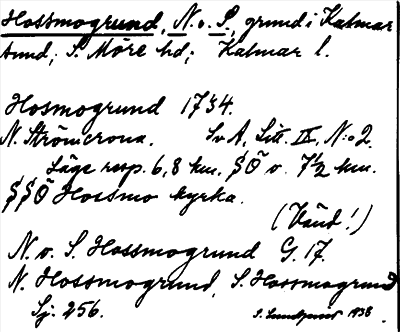 Hossmogrund, N. o. S., grund i Kalmar
sund; S. Möre hd; Kalmar l.
Hosmogrund 1734.
N. Strömcrona. Sv A, Litt. IX, N:o 2.
Läge resp. 6,8 km. SÖ o. 7½ km.
SSÖ Hossmo kyrka.
(Vänd!)
N. o. S. Hossmogrund G. 17.
N. Hossmogrund, S. Hossmogrund
Sj. 256.
1938